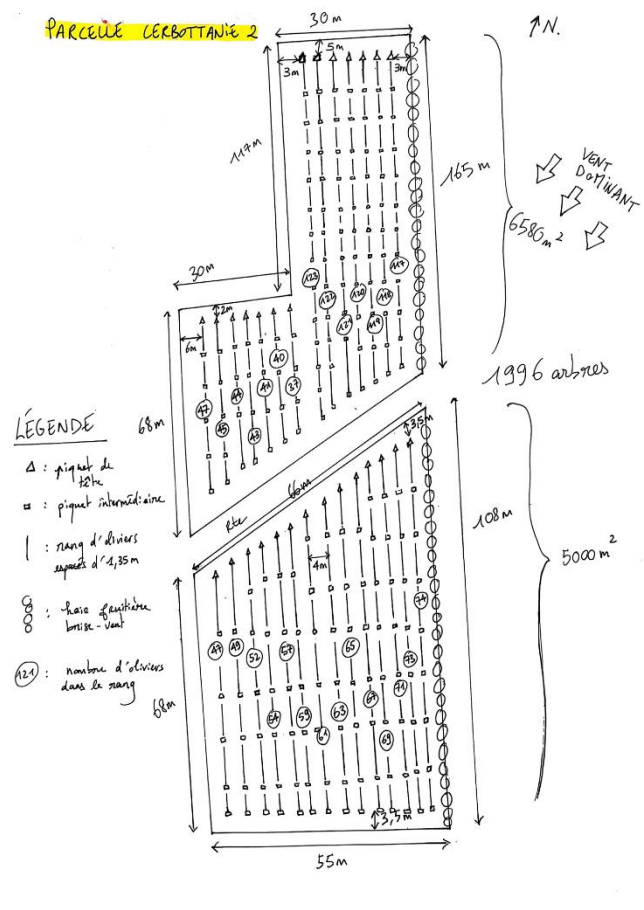 PARCELLE CERBOTTANIE 2
30m
↑N.
5m
3m
3m
117m
165m
VENT
DOMINANT
6580 m²
30m
123
122
121
120
119
118
117
2m
6m
40
47
45
44
43
41
37
68m
1996 arbres
LÉGENDE
Δ : piquet de
tête
: piquet intermédiaire
| : rang d'oliviers
espacés d'1,35m
: haie fruitière
brise-vent
121 : nombre d'oliviers
dans le rang
Rte
66m
3,5m
108m
5000m²
4m
47
49
52
54
57
59
61
63
65
67
69
71
73
74
68m
3,5m
55m